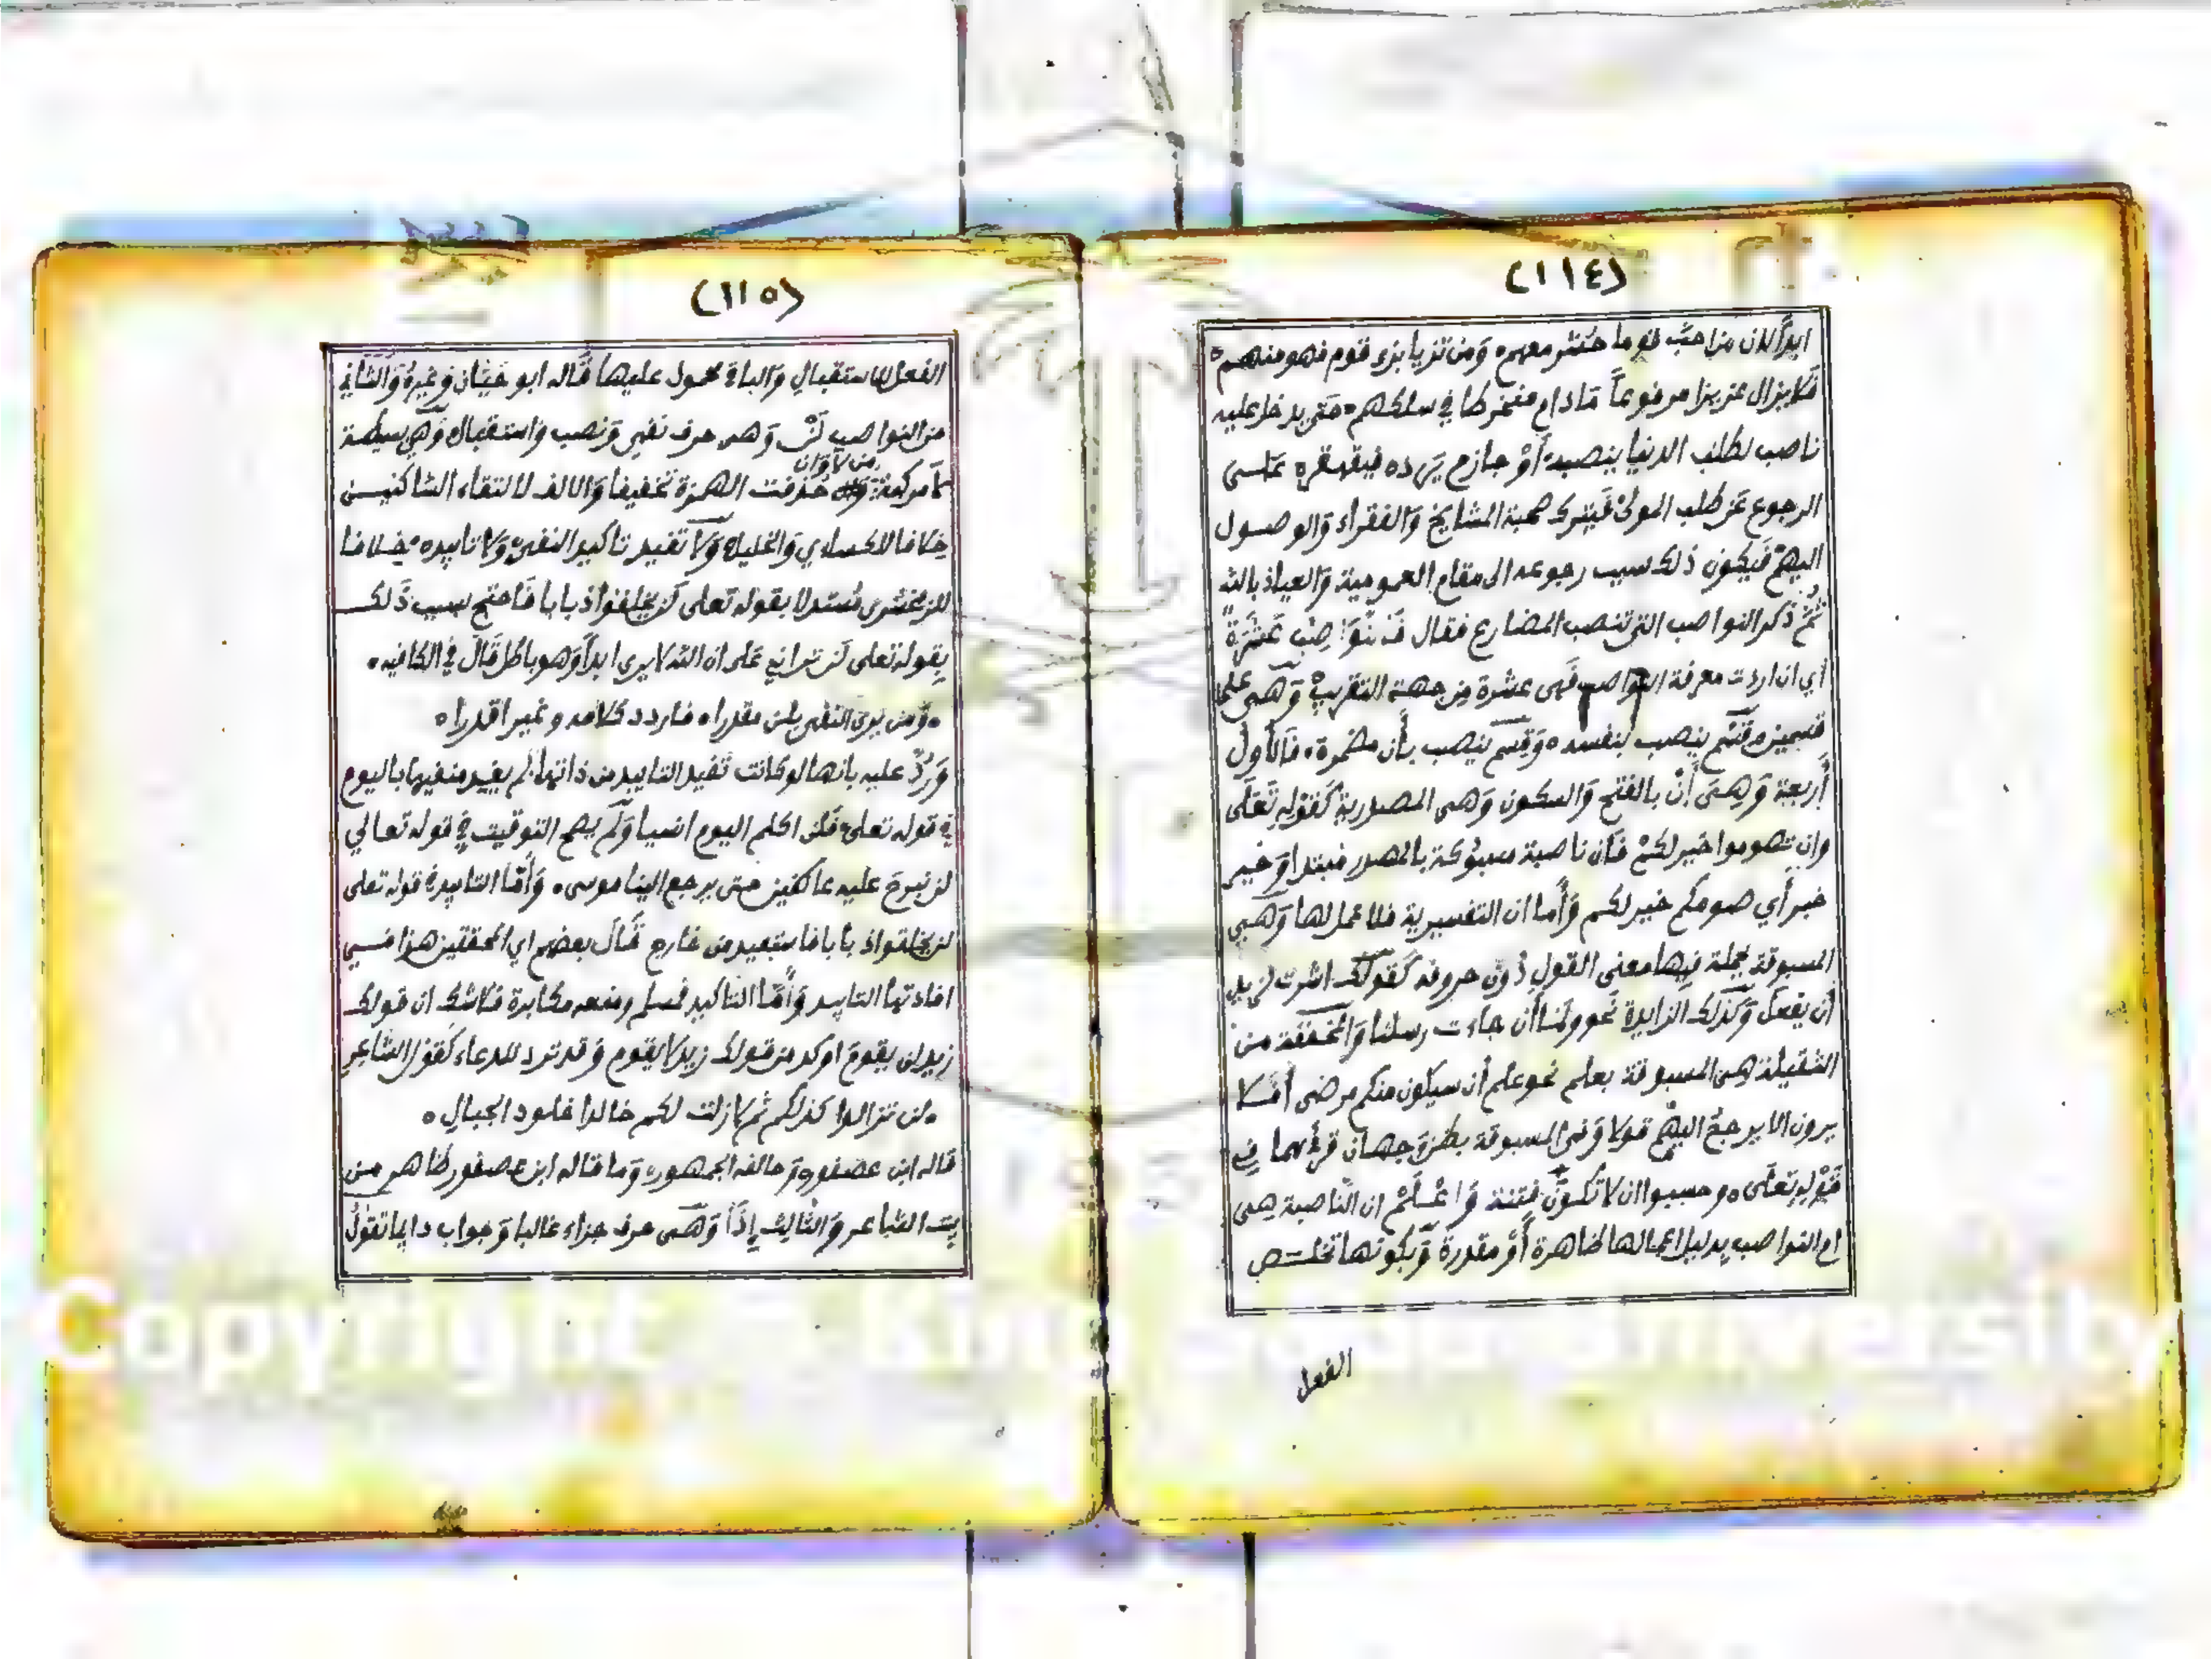 (١١٤)
ابدا لان من احب قوما حشر معهم ومن تزيا بزي قوم فهو منهم
فلا يزال عزيزا مرفوعاً مادام منخرطا في سلكهم حتى يدخل عليه
ناصب لطلب الدنيا ينصبه أو جازم فيقهقره
الرجوع عن طلب المولى فيترك صحبة المشايخ والفقراء والوصول
اليهم فيكون ذلك سبب رجوعه الى مقام العمومية والعياذ بالله
ثم ذكر النواصب التي تنصب المضارع فقال فَالنَّوَاصِبُ عَشَرَةٌ
أي ان اردت معرفة النواصب فهي عشرة من جهة التقريب وهي على
قسمين قسم ينصب بنفسه وقسم ينصب بأن مضمرة فالأول
أربعة وهي أنْ بالفتح والسكون وهي المصدرية كقوله تعلى
وان تصوموا خير لكم فان ناصبة مسبوكة بالمصدر مبتدا وخير
خبر أي صومكم خير لكم وأما ان التفسيرية فلا عمل لها وهي
المسبوقة بجملة فيها معنى القول دون حروفه كقولك اشرت لزيد
أن يفعل وكذلك الزايدة نحو ولما أن جاءت رسلنا والمخففة من
الثقيلة هي المسبوقة بعلم نحو علم أن سيكون منكم مرضى أفلا
يرون الا يرجع اليهم قولا وفي المسبوقة بظن وجهان قرئ بهما في
قوله تعلى وحسبوا ان لا تكون فتنة واعلم ان الناصبة هي
ام النواصب بدليل اعمالها ظاهرة أو مقدرة وبكونها تخلص
الفعل
(١١٥)
الفعل للاستقبال والباقي محمول عليها قاله ابو حيان وغيره والثاني
من النواصب لَنْ وهي حرف نفي ونصب واستقبال وهي بسيطة
لا مركبة من لا وان حذفت الهمزة تخفيفا والالف لالتقاء الساكنين
خلافا للكسائي والخليل ولا تفيد تاكيد النفي ولا تابيده خلافا
للزمخشري مستدلا بقوله تعلى لن يخلقوا ذبابا فاحتج بسبب ذلك
بقوله تعلى لن تراني على ان الله لا يرى ابدا وهو باطل قال في الكافيه
ومن يرى النفي بلن مقدرا فاردد كلامه وغير اقدرا
ورد عليه بانها لو كانت تفيد التابيد من ذاتها لم يقيد منفيها باليوم
في قوله تعلى فلن اكلم اليوم انسيا ولم يصح التوقيت في قوله تعالي
لن نبرح عليه عاكفين حتى يرجع الينا موسى وأما التابيد في قوله تعلى
لن يخلقوا ذبابا فاستفيد من خارج قال بعضهم اي المحققين هذا في
افادتها التابيد وأما التاكيد فمسلم ومنعه مكابرة فلا شك ان قولك
زيد لن يقوم اوكد من قولك زيد لا يقوم وقد ترد للدعاء كقول الشاعر
لن تزالوا كذلكم ثم لا زلت لكم خالدا خلود الجبال
قاله ابن عصفور وخالفه الجمهور وما قاله ابن عصفور ظاهر من
بيت الشاعر والثالث إذاً وهي حرف جزاء غالبا وجواب دايما تقول
Copyright © King Saud University